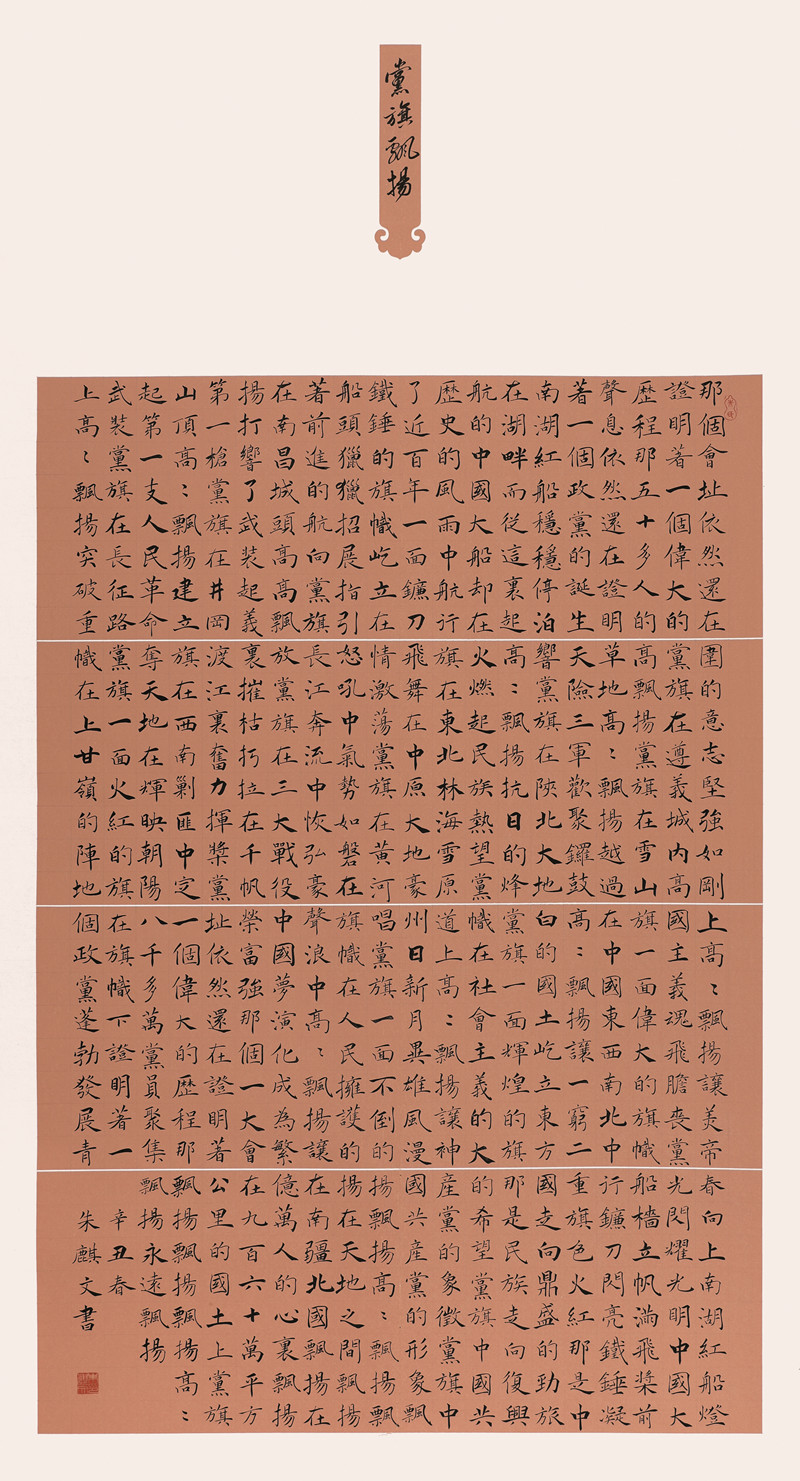 黨旗飄揚
那個會址依然還在
證明著一個偉大的
歷程那五十多人的
聲息依然還在證明
著一個政黨的誕生
南湖紅船穩穩停泊
在湖畔而從這裏起
航的中國大船却在
歷史的風雨中航行
了近百年一面鐮刀
鐵錘的旗幟屹立在
船頭獵獵招展指引
著前進的航向黨旗
在南昌城頭高高飄
揚打響了武裝起義
第一槍黨旗在井岡
山頂高〻飄揚建立
起第一支人民革命
武裝黨旗在長征路
上高〻飄揚突破重
圍的意志堅強如剛
黨旗在遵義城内高
高飄揚黨旗在雪山
草地高〻飄揚越過
天險三軍歡聚鑼鼓
響黨旗在陝北大地
高〻飄揚抗日的烽
火燃起民族熱望黨
旗在東北林海雪原
飛舞在中原大地豪
情激蕩黨旗在黄河
怒吼中氣勢如磐在
長江奔流中恢弘豪
放黨旗在三大戰役
裏摧枯朽拉在千帆
渡江裏奮力揮槳黨
旗在西南剿匪中定
奪天地在輝映朝陽
黨旗一面火紅的旗
幟在上甘嶺的陣地
上高〻飄揚讓美帝
國主義魂飛膽喪黨
旗一面偉大的旗幟
在中國東西南北中
高〻飄揚讓一窮二
白的國土屹立東方
黨旗一面輝煌的旗
幟在社會主義的大
道上高〻飄揚讓神
州日新月異雄風漫
唱黨旗一面不倒的
旗幟在人民擁護的
聲浪中高〻飄揚讓
中國夢演化成為繁
榮富強那個一大會
址依然還在證明著
一個偉大的歷程那
八千多萬黨員聚集
在旗幟下證明著一
個政黨蓬勃發展青
春向上南湖紅船燈
光閃耀光明中國大
船檣立帆滿飛槳前
行鐮刀閃亮鐵錘凝
重旗色火紅那是中
國走向鼎盛的勁旅
那是民族走向復興
的希望黨旗中國共
產黨的象徵黨旗中
國共產黨的形象飄
揚飄揚高〻飄揚飄
揚在天地之間飄揚
在南疆北國飄揚在
億萬人的心裏飄揚
在九百六十萬平方
公里的國土上黨旗
飄揚飄揚飄揚高〻
飄揚永遠飄揚
辛丑春
朱麒文書